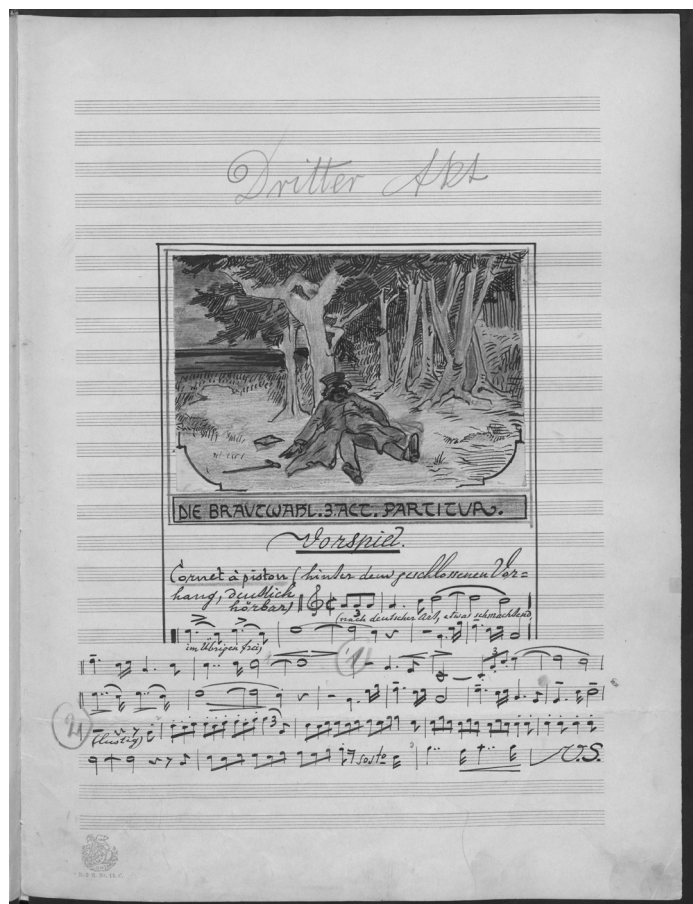 Dritter Akt
DIE BRAUTWAHL. 3. ACT. PARTITUR.
Vorspiel.
Cornet à piston (hinter dem geschlossenen Vor=
hang, deutlich
hörbar)
(nach deutscher Art, etwas schmachtend,
im Übrigen frei)
1)
2)
(lustig)
3
sosto
V.S.